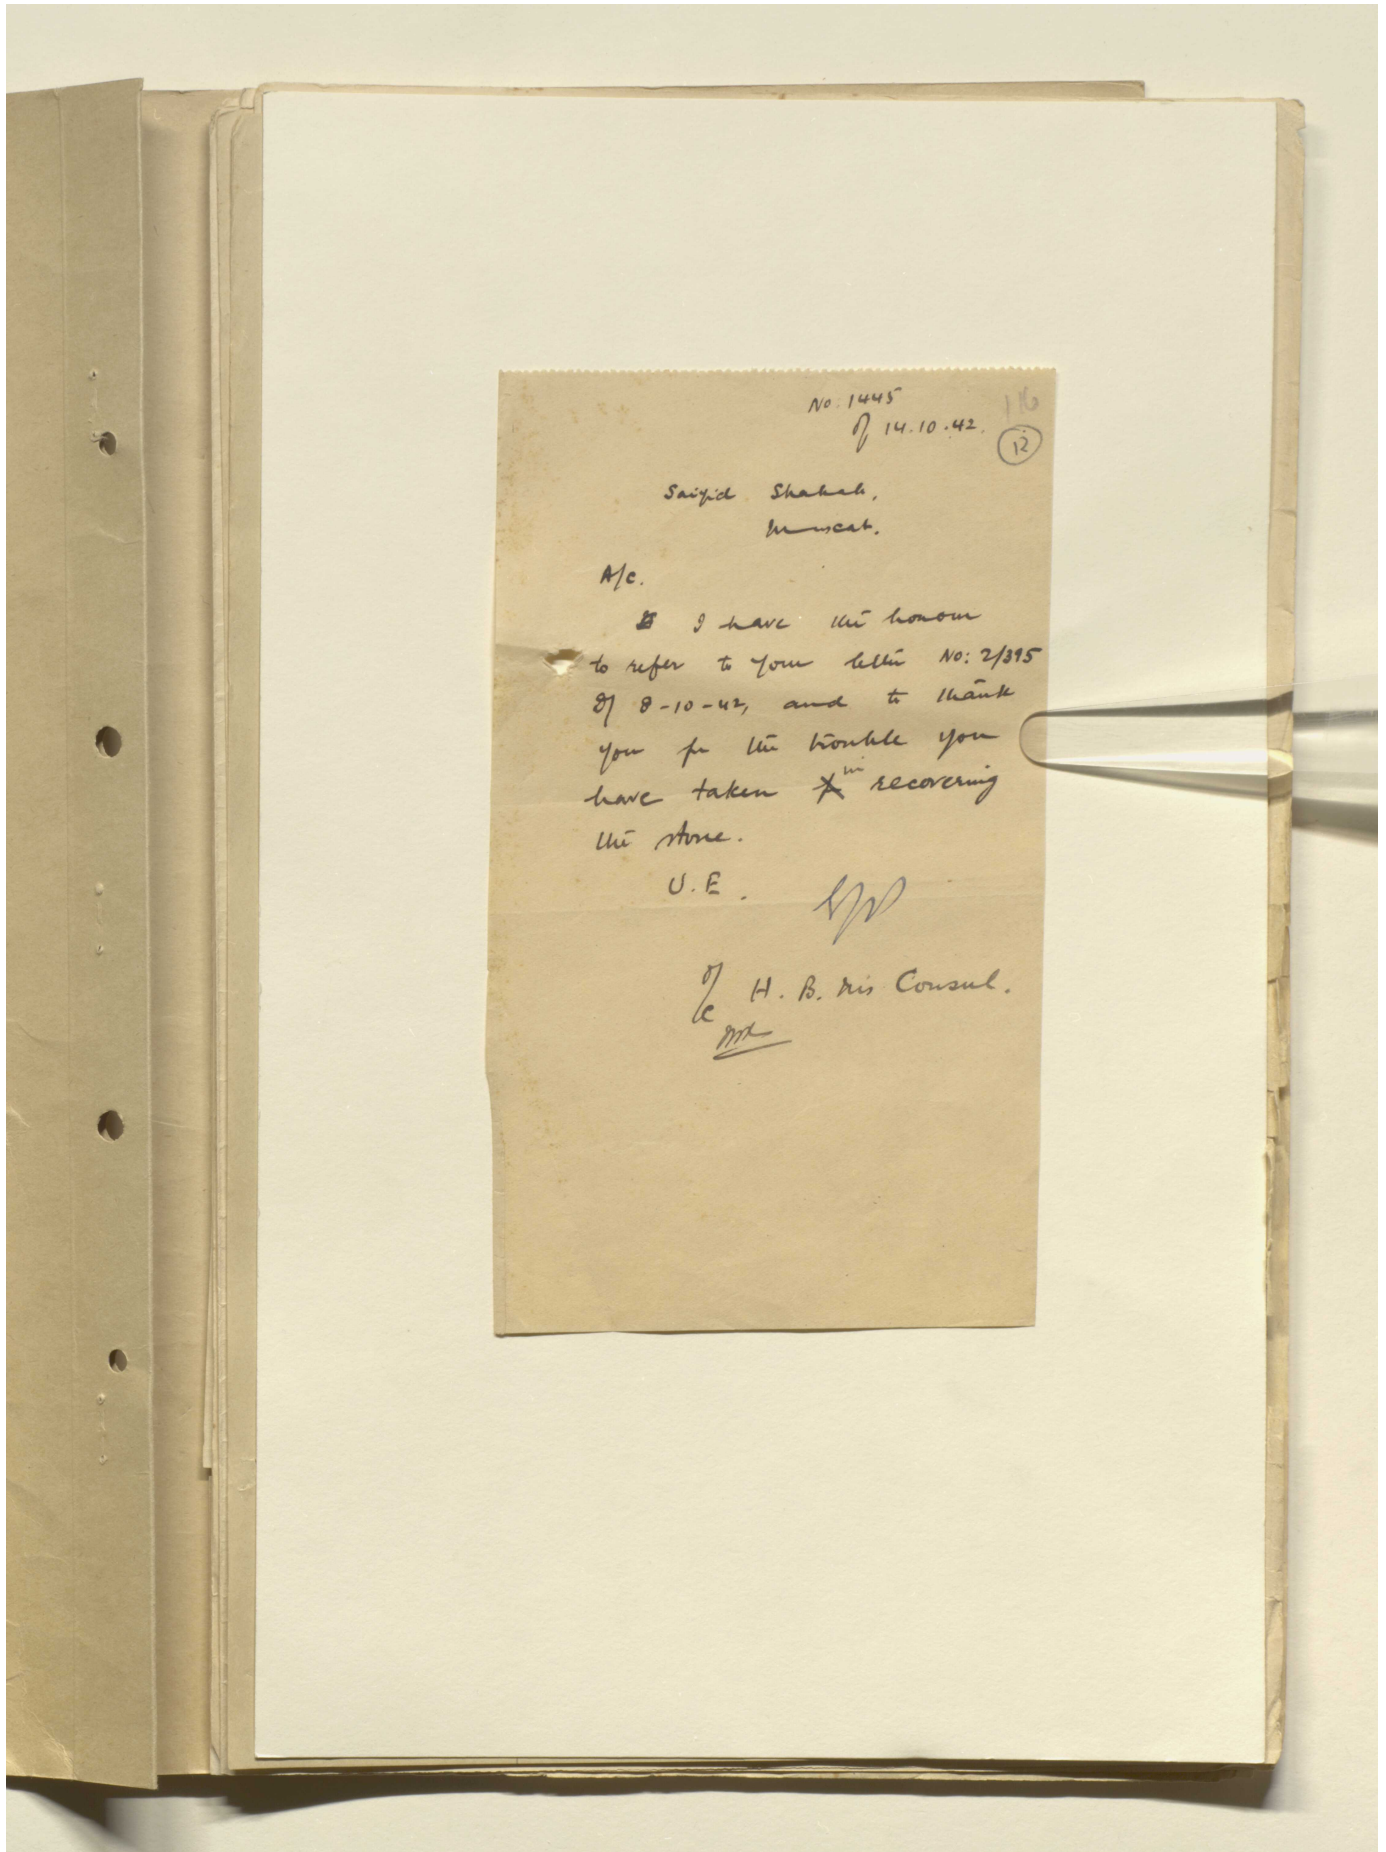 No. 1445
of 14.10.42.
116
12
Saiyid Shahab,
Muscat.
A/c.
I have the honour
to refer to your letter No: 2/395
of 8-10-42, and to thank
you for the trouble you
have taken in recovering
the stone.
U.E.
H. B. M's Consul.